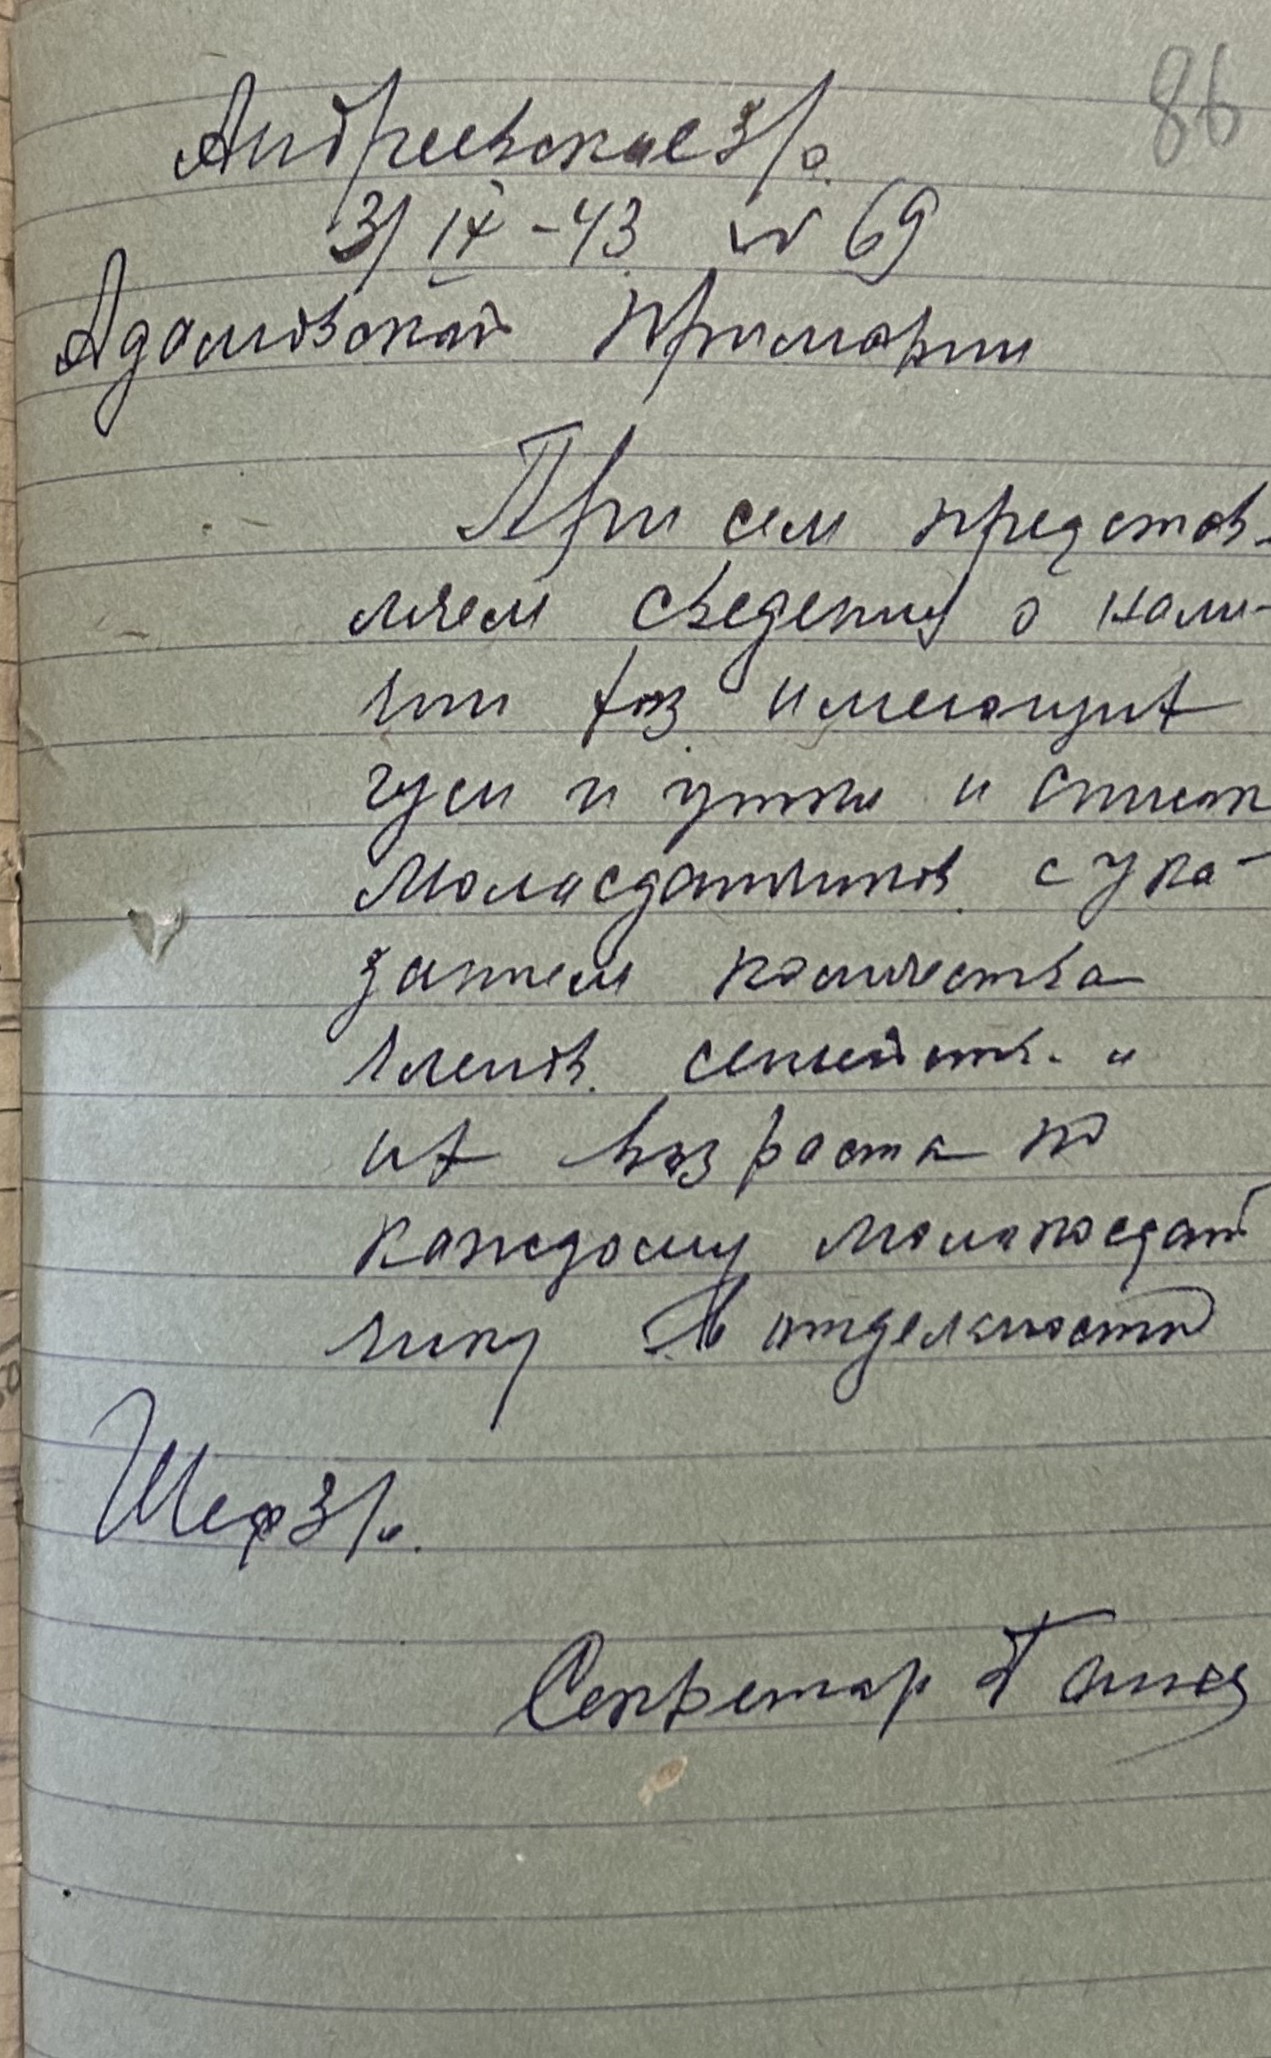 86
Андреевское з/о.
3/IX-43 № 69
Адамовской Примарии
При сем представ-
ляем сведения о нали-
чии хоз имеющих
гуси и утки и список
молосдатчиков с ука-
занием количества
членов семейств. и
их возраста по
каждому молокосдат
чику в отделности
Шеф з/о.
Секретар